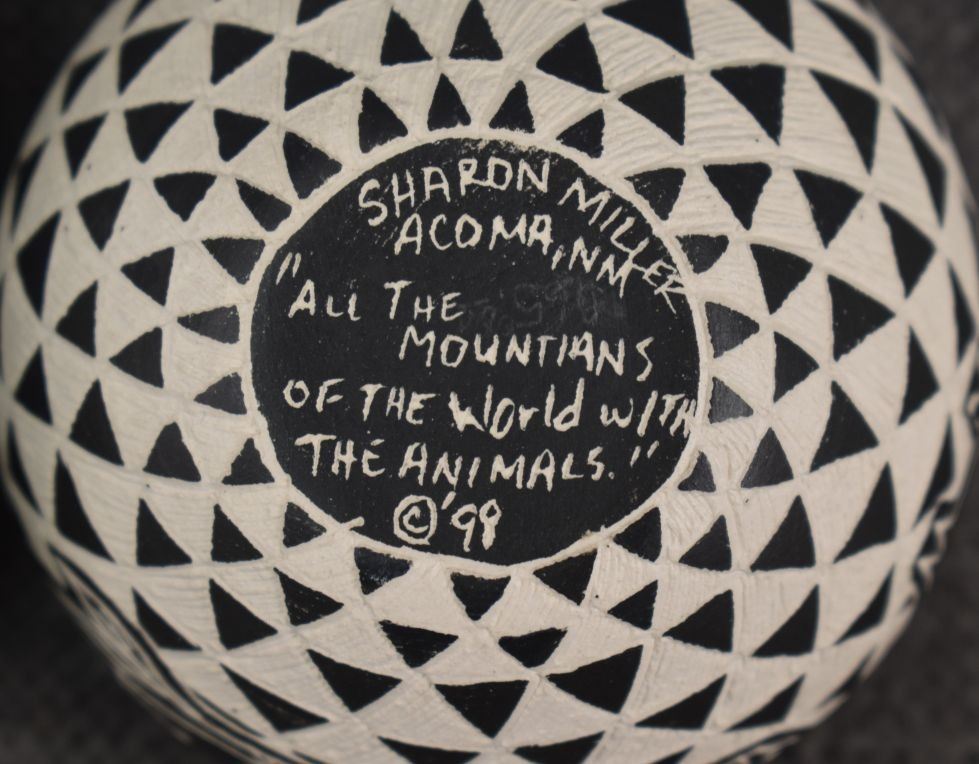 SHARON MILLER
ACOMA, NM
"ALL THE
MOUNTIANS
OF THE World WITH
THE ANIMALS."
©'98